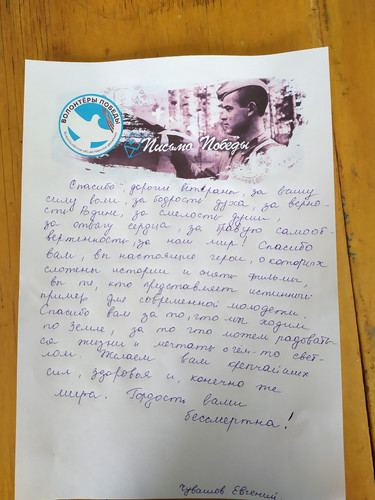 ВОЛОНТЁРЫ ПОБЕДЫ
Письмо Победы
Спасибо, дорогие ветераны, за вашу
силу воли, за бодрость духа, за верно-
сть Родине, за смелость души,
за отвагу сердца, за бравую самоот-
верженность, за наш мир! Спасибо
вам, вы настоящие герои, о которых
сложены истории и сняты фильмы,
вы те, кто представляет истинный
пример для современной молодежи.
Спасибо вам за то, что мы ходим
по Земле, за то что можем радовать-
ся жизни и мечтать о чем-то свет-
лом. Желаем вам крепчайших
сил, здоровья и, конечно же
мира. Гордость вами
бессмертна!
Чувашов Евгений